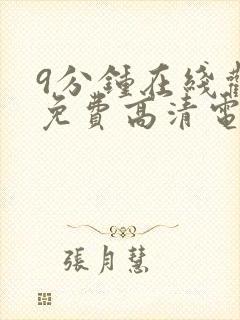 9分鍾在綫觀
免費高清電
張月慧